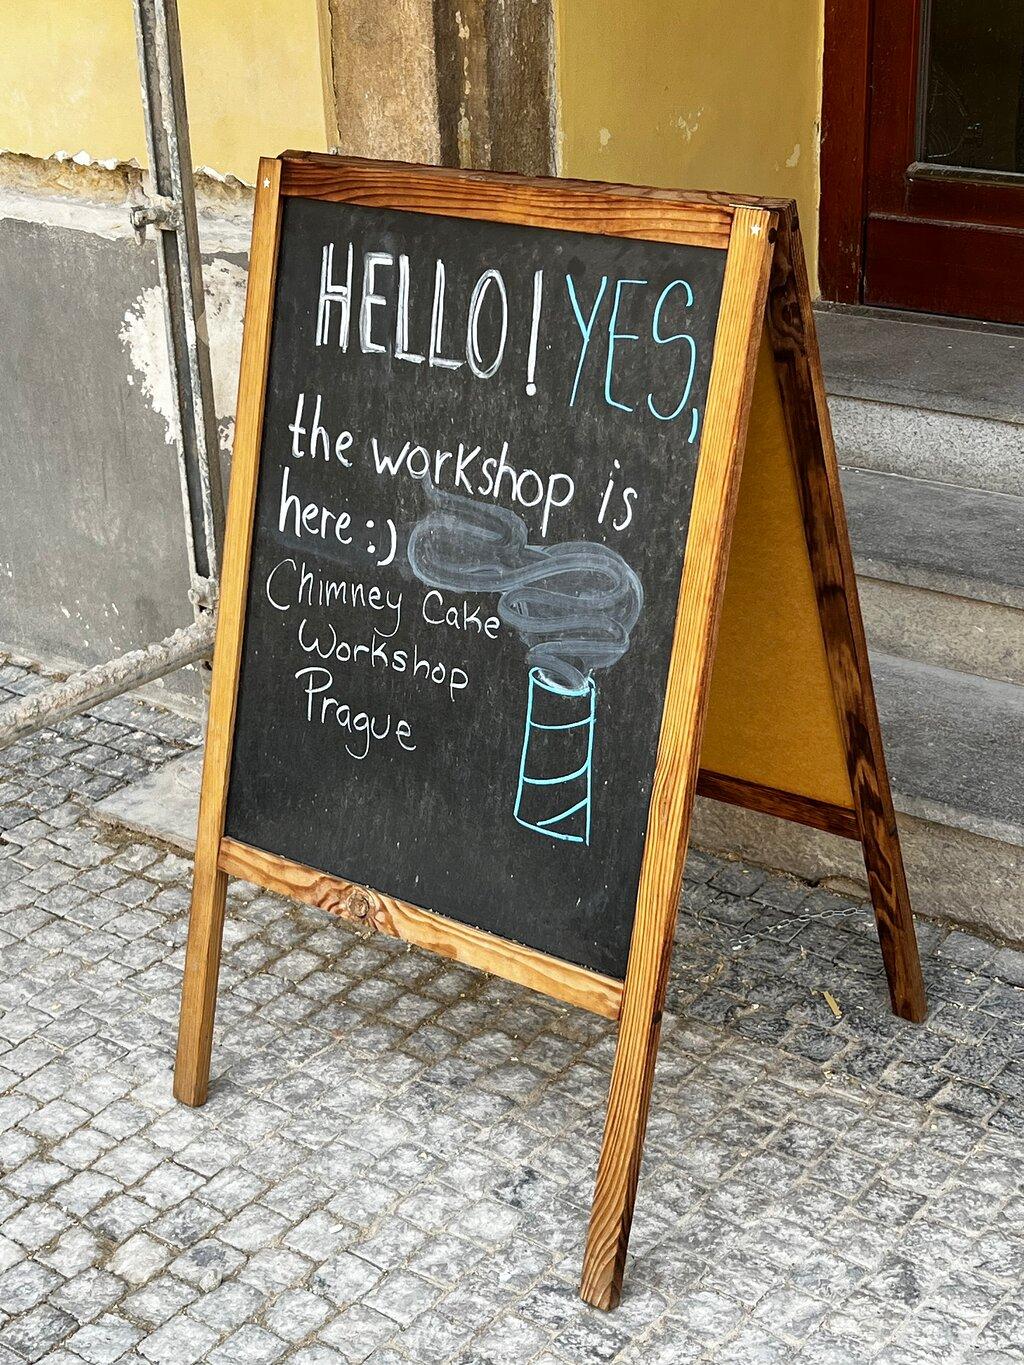 HELLO! YES,
the workshop is
here :)
Chimney Cake
Workshop
Prague